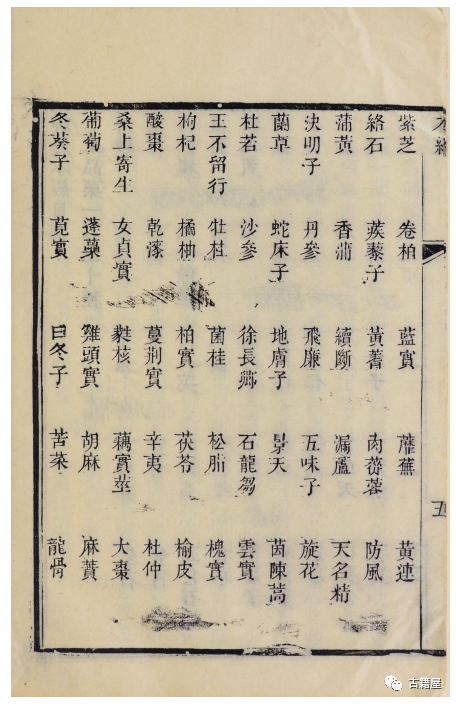 紫芝 卷柏 藍實 蘼蕪 黃連
絡石 蒺藜子 黃蓍 肉蓯蓉 防風
蒲黃 香蒲 續斷 漏蘆 天名精
決明子 丹參 飛廉 五味子 旋花
蘭草 蛇床子 地膚子 景天 茵陳蒿
杜若 沙參 徐長卿 石龍芻 雲實
王不留行 牡桂 菌桂 松脂 槐實
枸杞 橘柚 柏實 茯苓 榆皮
酸棗 乾漆 蔓荊實 辛夷 杜仲
桑上寄生 女貞實 蕤核 藕實莖 大棗
葡萄 蓬蘽 雞頭實 胡麻 麻蕡
冬葵子 莧實 白冬子 苦菜 龍骨
古籍屋